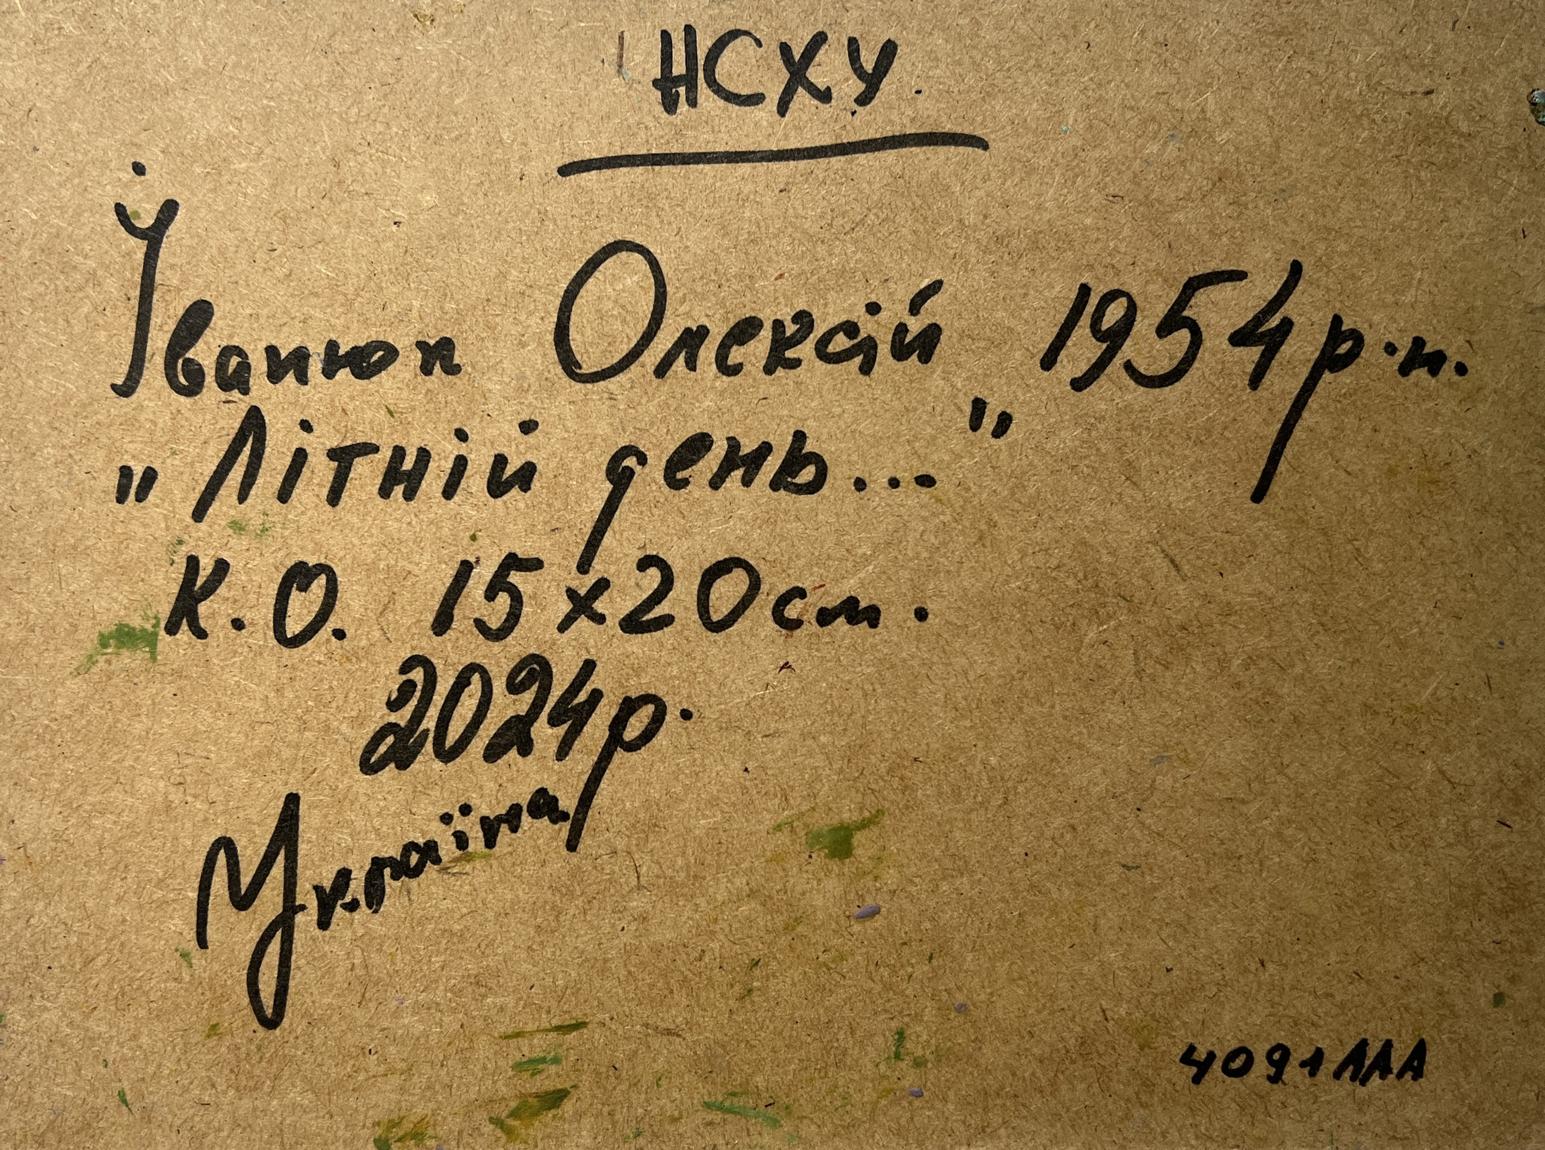 НСХУ.
Іванюк Олексій 1954 р.н.
„Літній день..."
К.О. 15x20см.
2024р.
Україна
4091ААА